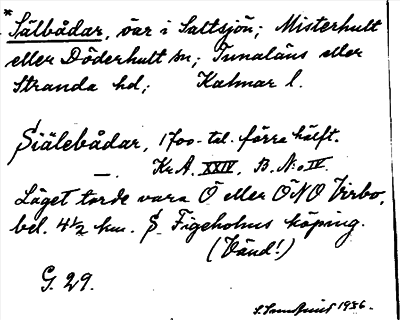 * Sälbådar, öar i Saltsjön; Misterhult
eller Döderhult sn; Tunaläns eller
Stranda hd; Kalmar l.
Siälebådar, 1700-tal. förra hälft.
— . Kr. A. XXIV, B. N:o IV.
Läget torde vara Ö eller ÖNO Virbo,
bel. 4½ km. S. Figeholms köping.
(Vänd!)
G. 29.
1936.